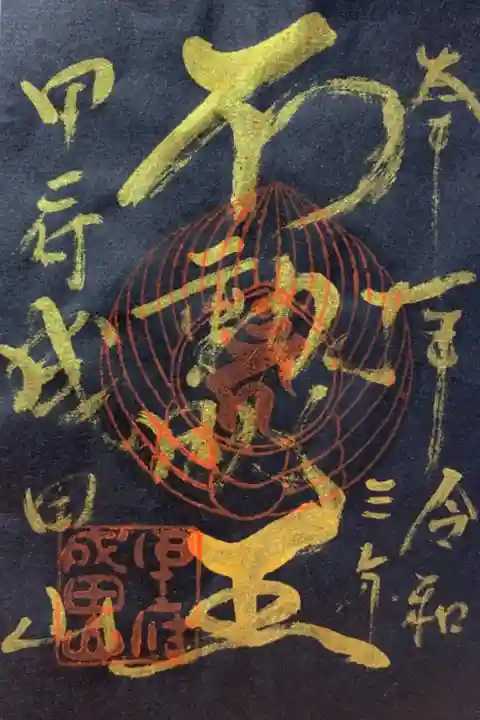 奉
令和
三年
不動明王
甲府成田山
甲府
成田山